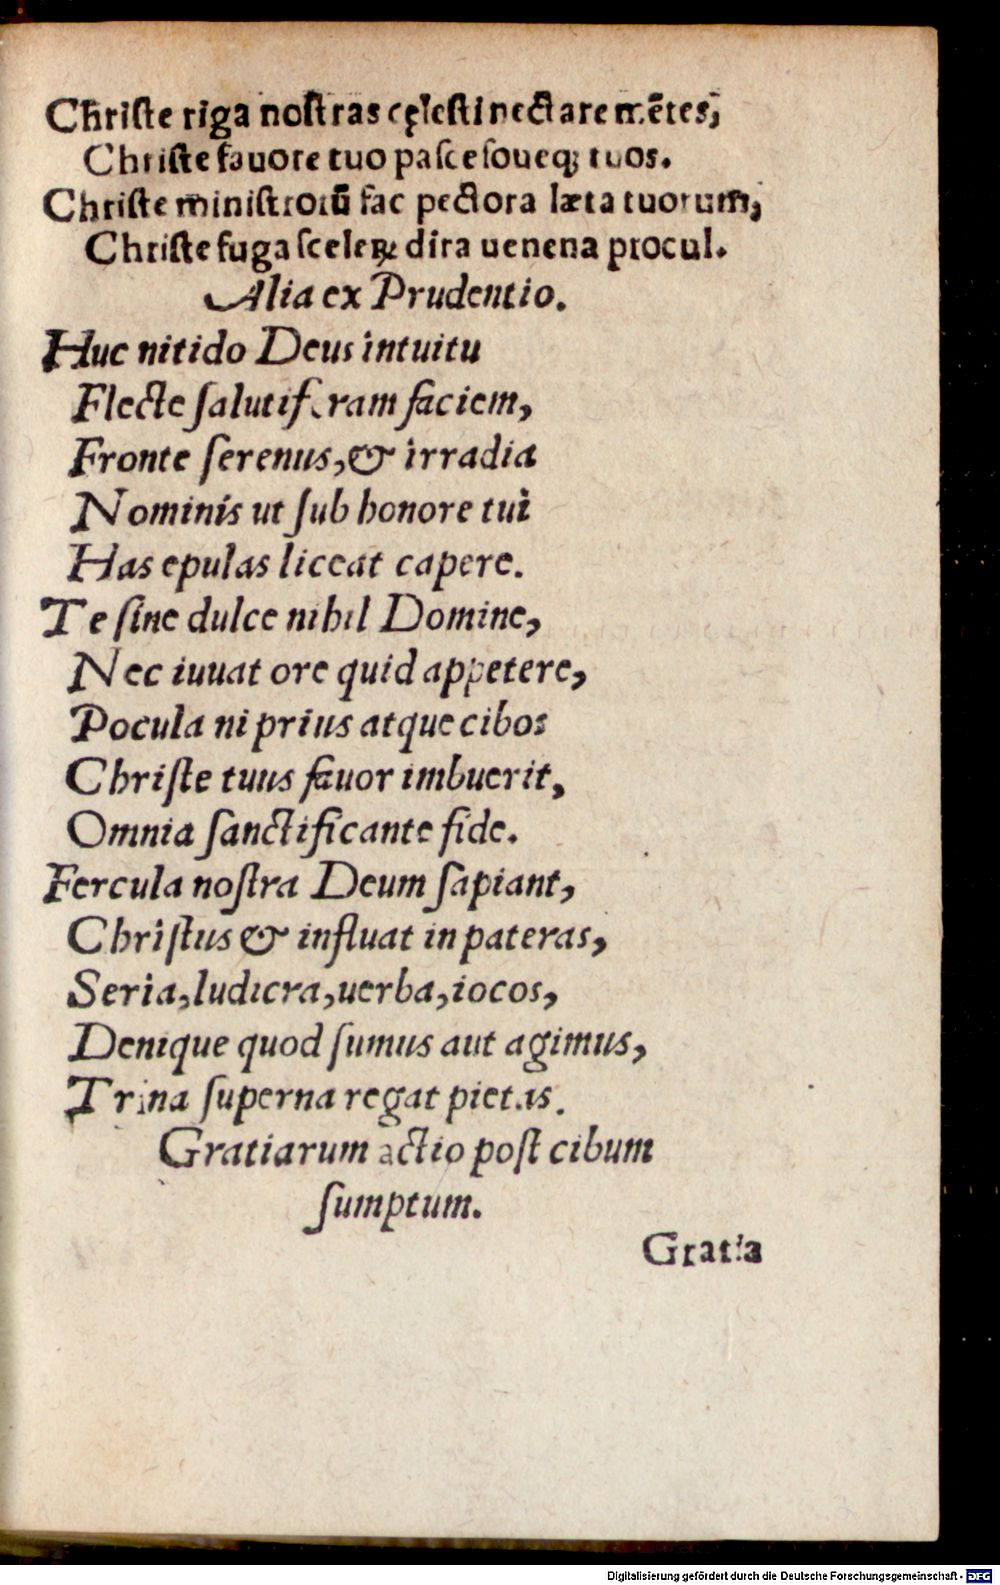 Christe riga nostras cęlesti nectare mētes,
Christe fauore tuo pasce foueq; tuos.
Christe ministrorū fac pectora læta tuorum,
Christe fuga sceleꝝ dira uenena procul.
Alia ex Prudentio.
Huc nitido Deus intuitu
Flecte salutiferam faciem,
Fronte serenus, & irradia
Nominis ut sub honore tui
Has epulas liceat capere.
Te sine dulce nihil Domine,
Nec iuuat ore quid appetere,
Pocula ni prius atque cibos
Christe tuus fauor imbuerit,
Omnia sanctificante fide.
Fercula nostra Deum sapiant,
Christus & influat in pateras,
Seria, ludicra, uerba, iocos,
Denique quod sumus aut agimus,
Trina superna regat pietas.
Gratiarum actio post cibum
sumptum.
Gratia
Digitalisierung gefördert durch die Deutsche Forschungsgemeinschaft - DFG